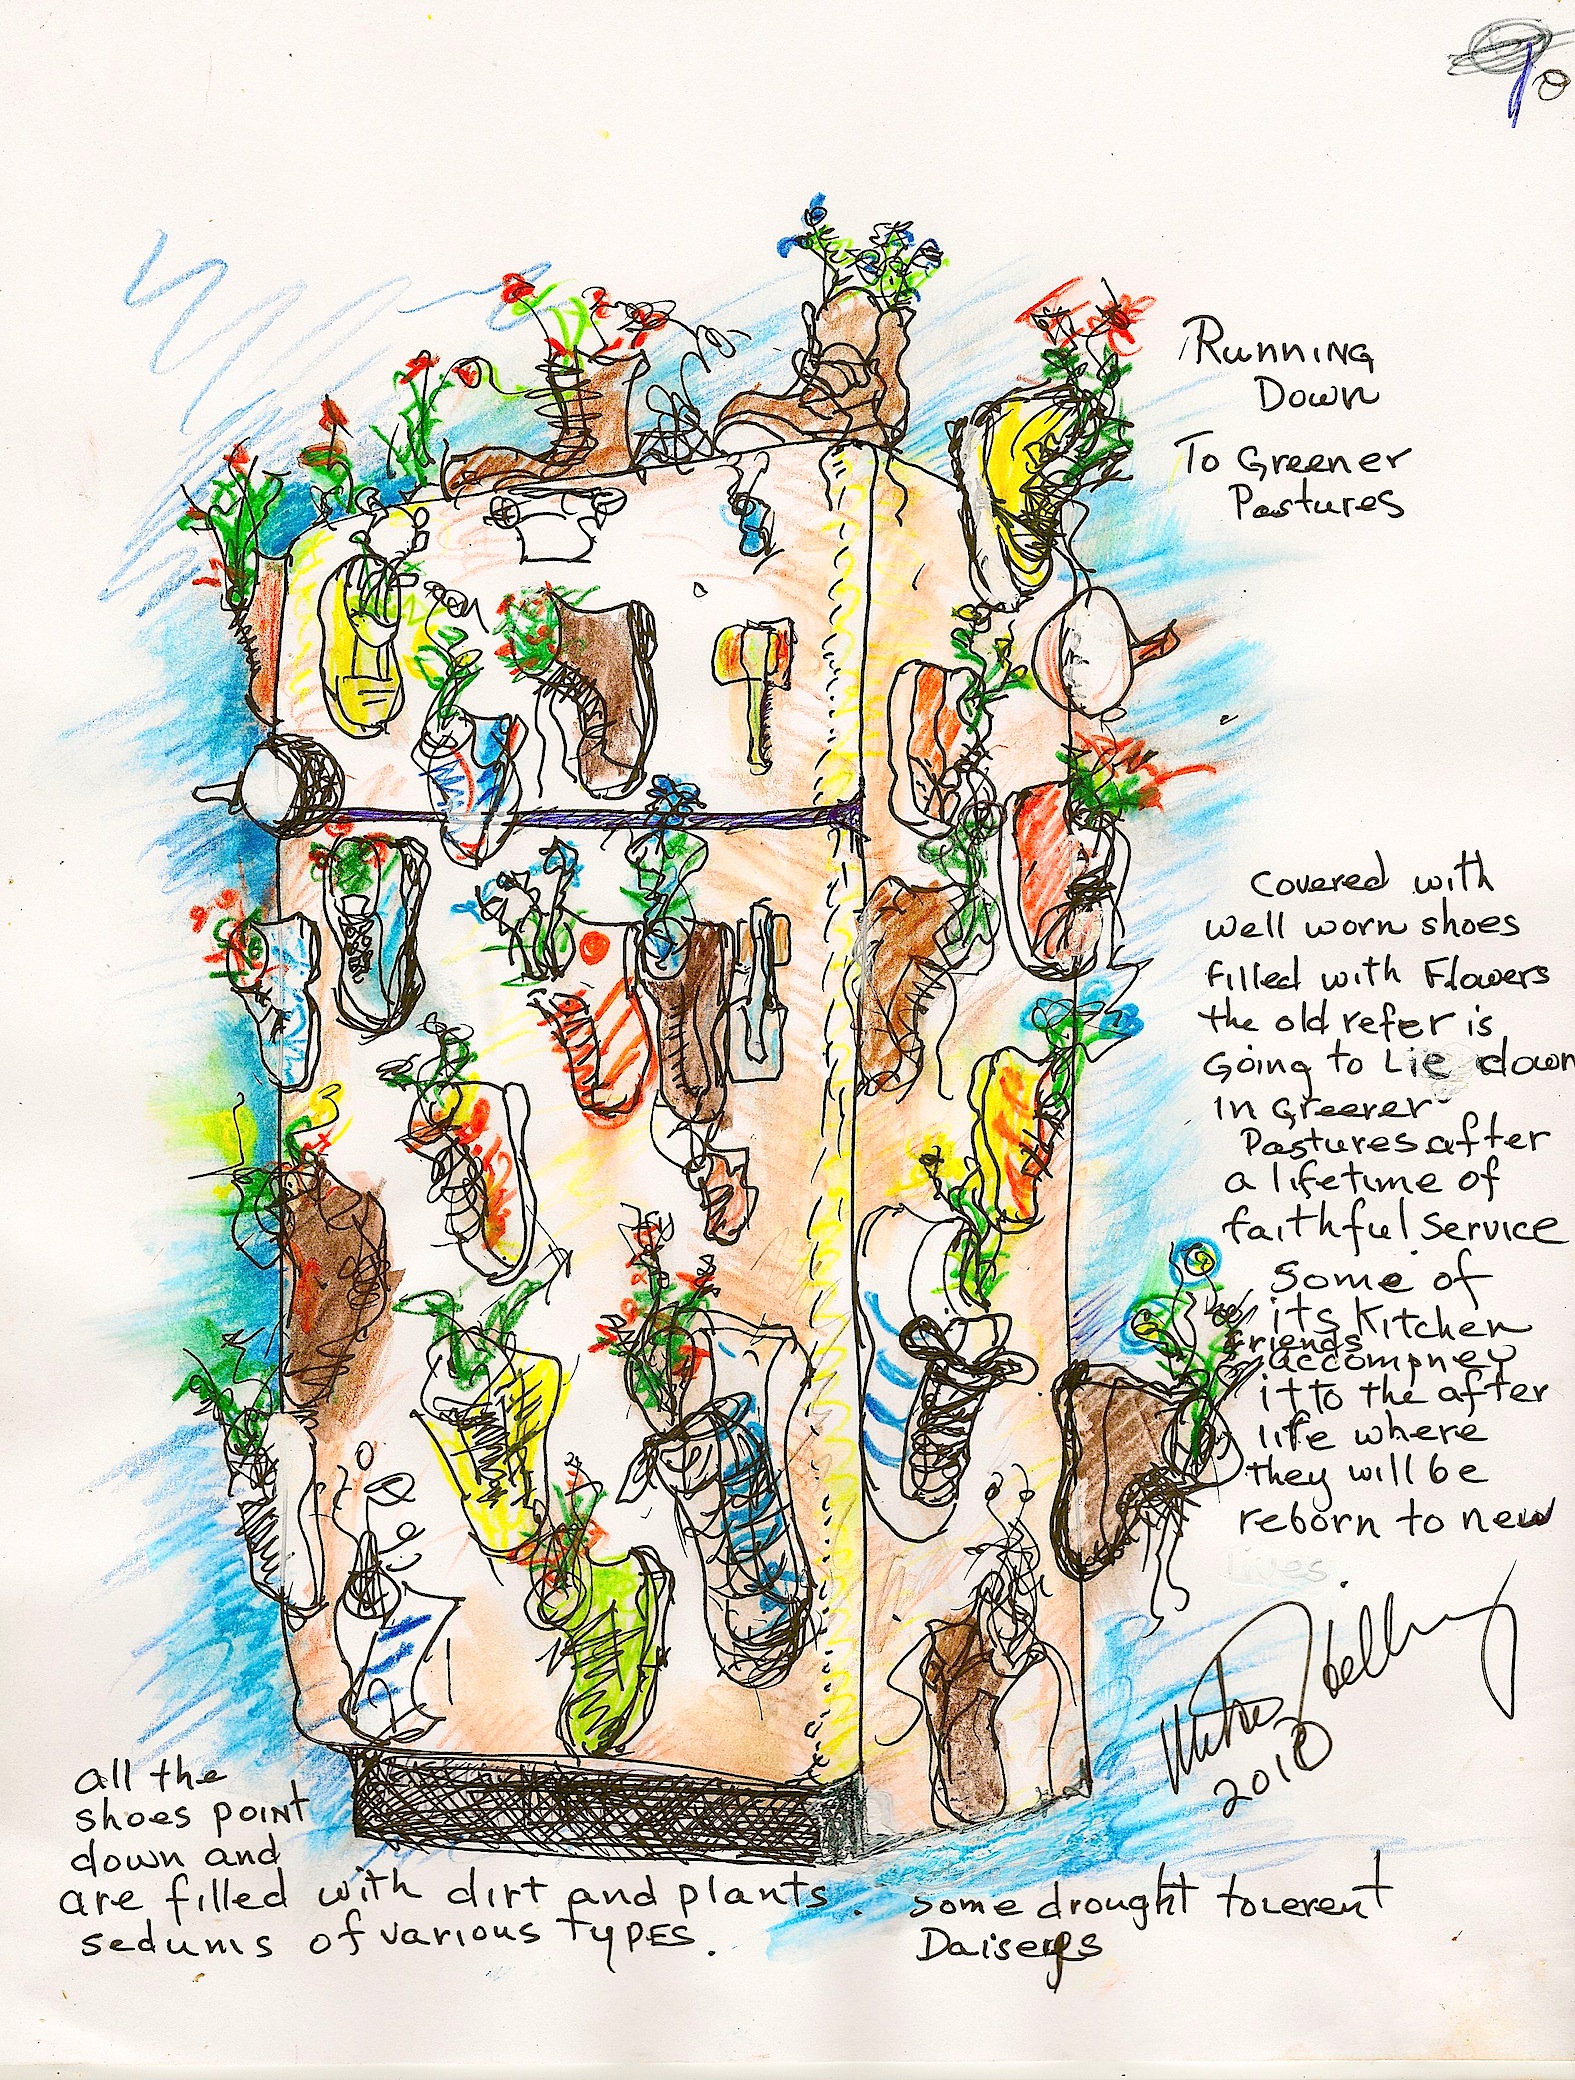 Running
Down
To Greener
Pastures
Covered with
well worn shoes
filled with Flowers
the old refer is
Going to Lie down
in Greener
Pastures after
a lifetime of
faithful service
Some of
its Kitchen
friends
accompney
it to the after
life where
they will be
reborn to new
lives
2018
all the
shoes point
down and
are filled with dirt and plants.
sedums of various types.
some drought tolerent
Daiseys